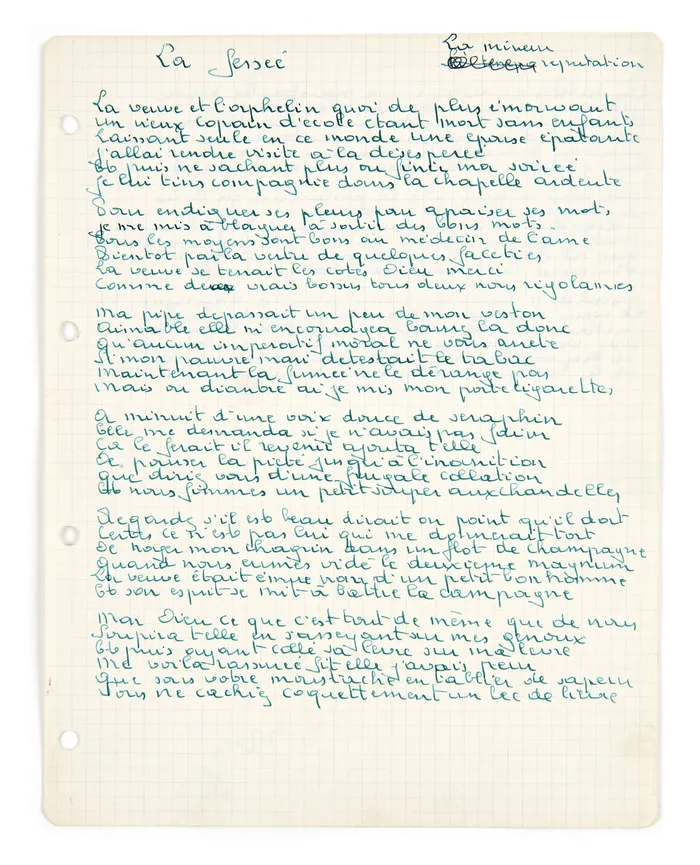 La fessée
La mineur
reputation
La veuve et l'orphelin quoi de plus émouvant
un vieux copain d'ecole étant mort sans enfants
Laissant seule en ce monde une epouse épatante
J'allai rendre visite à la désesperée
Et puis ne sachant plus ou finir ma soireé
Je lui tins compagnie dans la chapelle ardente
Pour endiguer ses pleurs pour apaiser ses mots,
je me mis à blaguer à sortir des bons mots.
Tous les moyens sont bons au médecin de l'ame
Bientot par la vertu de quelques faceties
La veuve se tenait les cotes Dieu merci
Comme des vrais bossus tous deux nous rigolames
Ma pipe depassait un peu de mon veston
Aimable elle m'encouragea bourrez la donc
Qu'aucun imperatif moral ne vous arrete
Si mon pauvre mari detestait le tabac
Maintenant la fumée ne le dérange pas
Mais ou diantre ai je mis mon porte cigarettes
A minuit d'une voix douce de seraphin
Elle me demanda si je n'avais pas faim
Ca le ferait il revenir ajouta t'elle
De pousser la pieté jusqu'à l'inanition
Que diriez vous d'une frugale collation
Et nous fimmes un petit souper aux chandelles
Regardez s'il est beau dirait on point qu'il dort
Certes ce n'est pas lui qui me donnerait tort
De noyer mon chagrin dans un flot de champagne
Quand nous eumes vidé le deuxieme magnum
La veuve était émue nom d'un petit bonhomme
Et son esprit se mit à battre la campagne
Mon Dieu ce que c'est tout de même que de nous
Soupira t'elle en s'asseyant sur mes genoux
Et puis ayant collé sa levre sur ma levre
Me voila rassurée fit elle j'avais peur
Que sous votre moustache en tablier de sapeur
Vous ne cachiez coquettement un bec de lievre